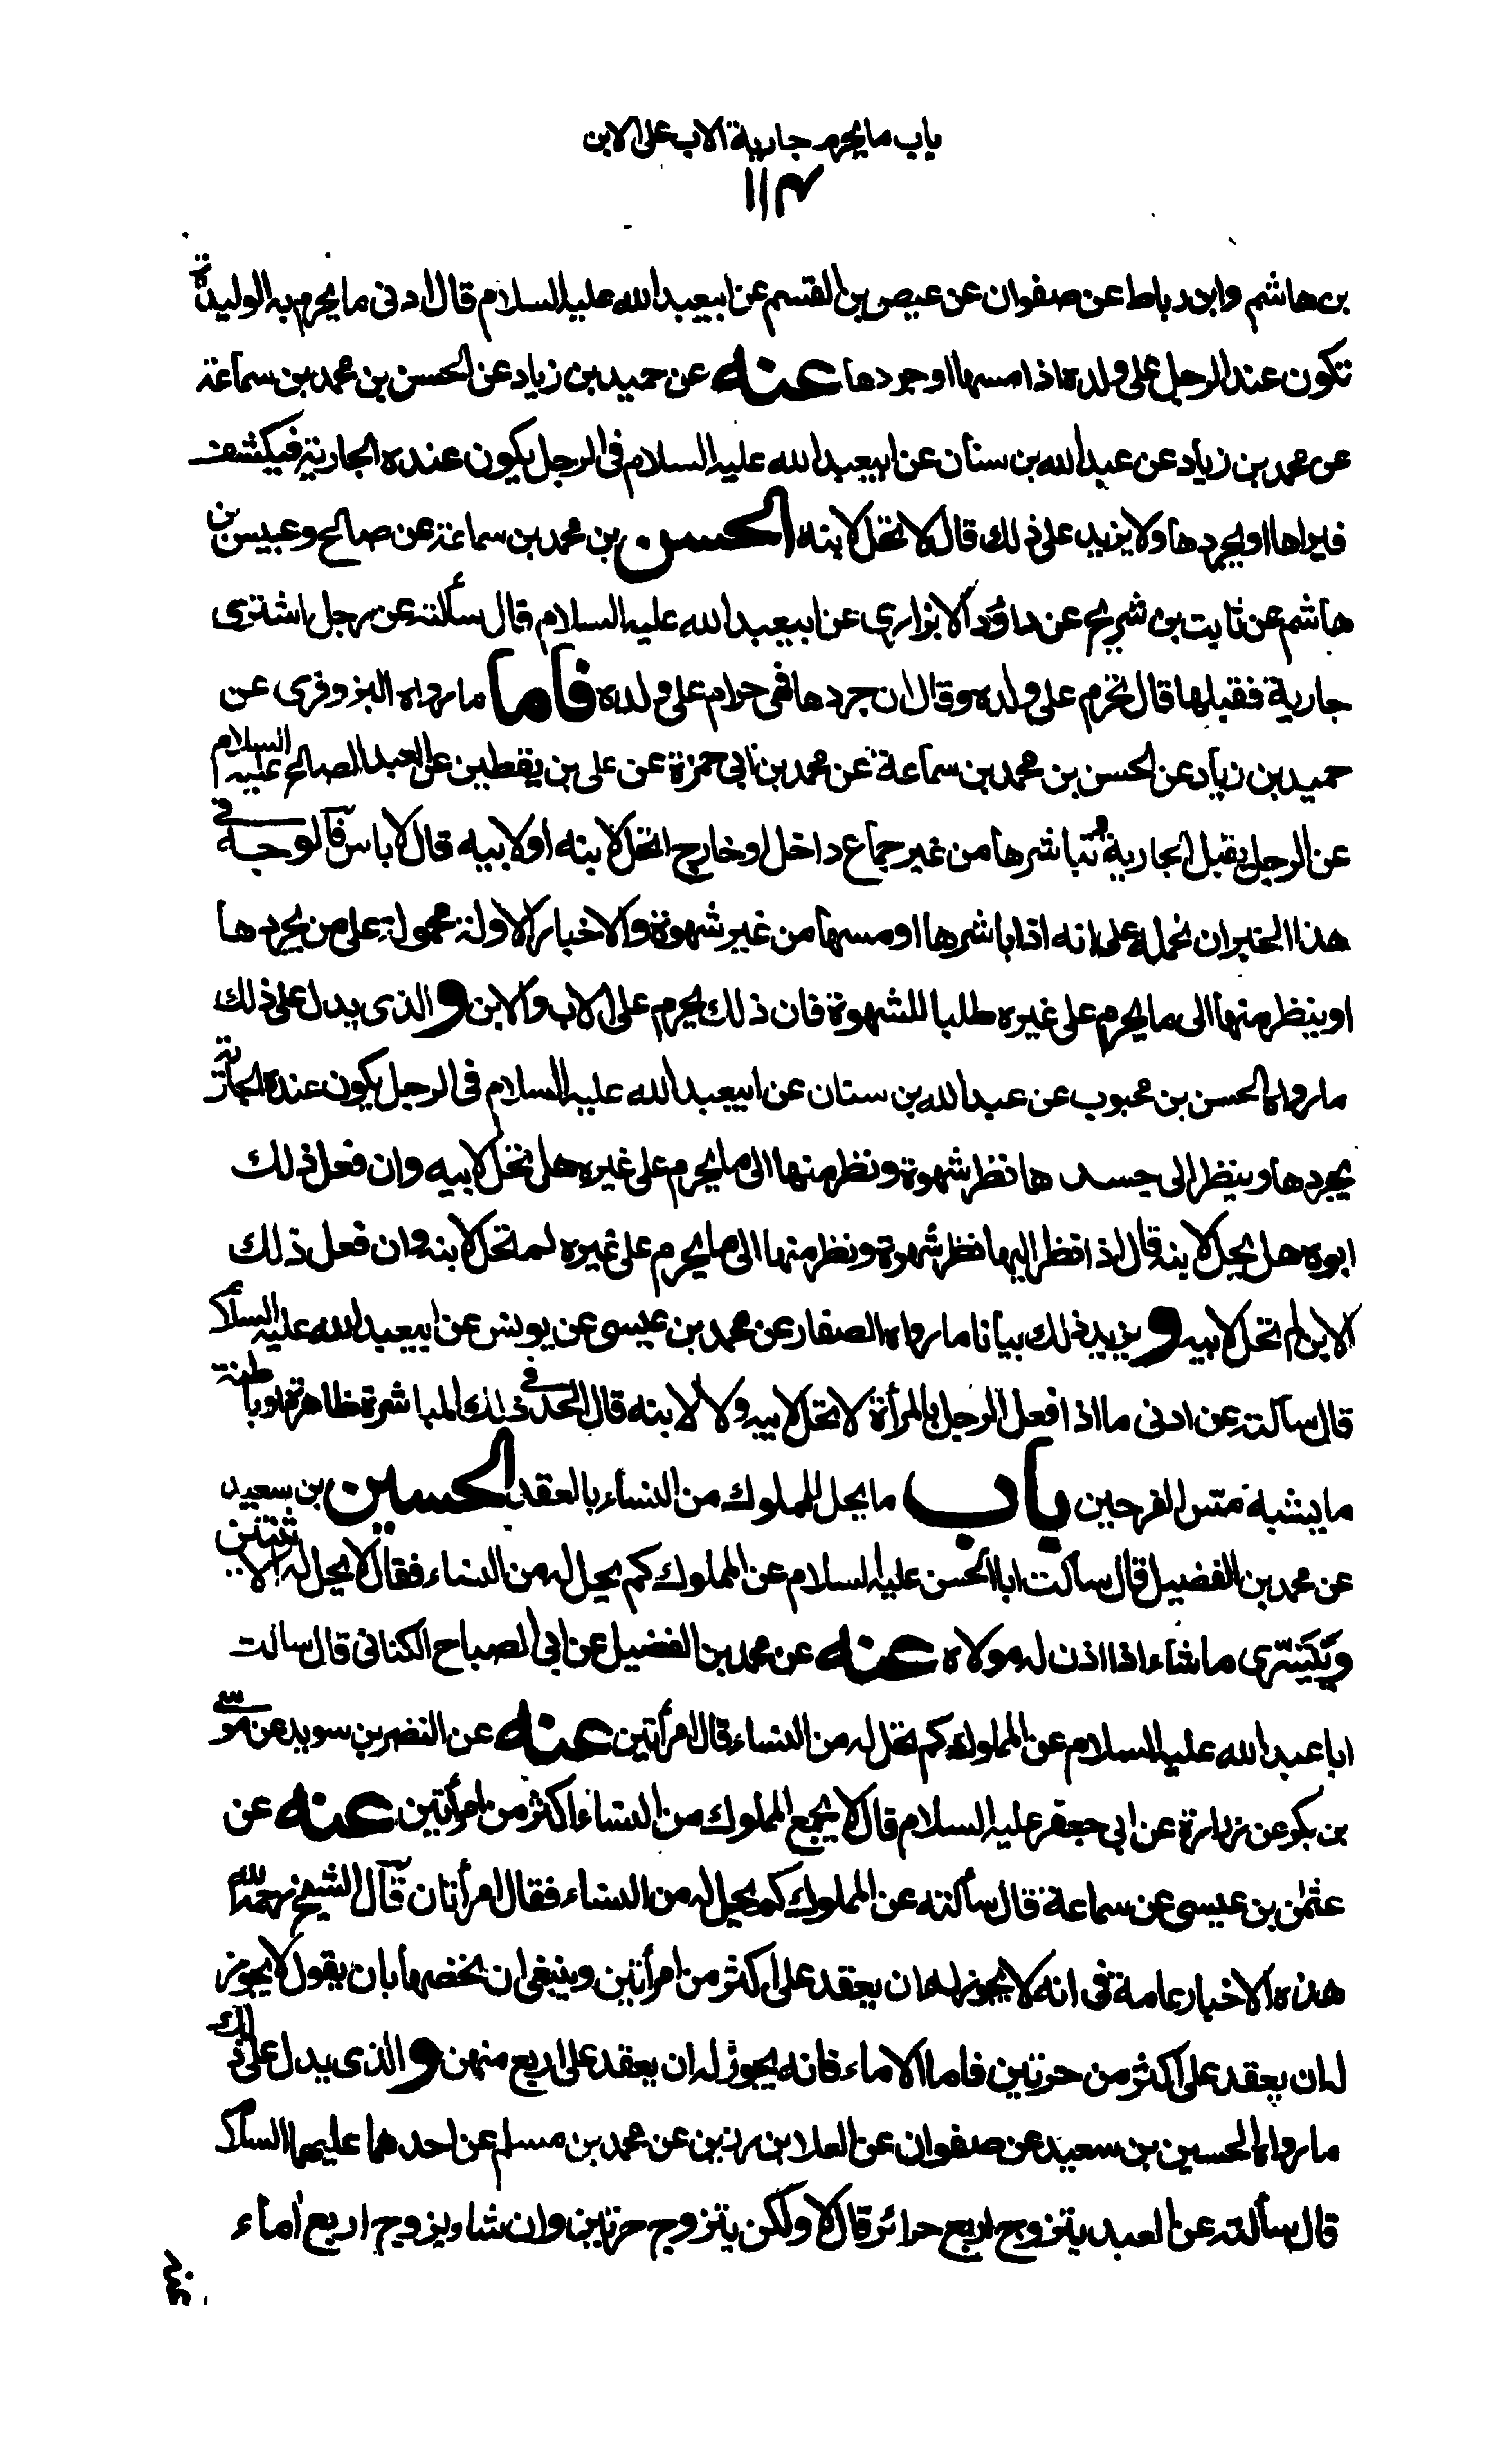 باب ما يحرم جارية الاب على الابن
١١٣
بن هاشم وابن رباط عن صفوان عن عيص بن القسم عن ابيعبد الله عليه السلام قال ادنى ما يحرم به الوليدة
تكون عند الرجل على ولده اذا مسها او جردها عنه عن حميد بن زياد عن الحسن بن محمد بن سماعة
عن محمد بن زياد عن عبد الله بن سنان عن ابيعبد الله عليه السلام فى الرجل يكون عنده الجارية فيكشف
فيراها او يجردها ولا يزيد على ذلك قال لا تحل لابنه الحسن بن محمد بن سماعة عن صالح وعبيس بن
هاشم عن ثابت بن شريح عن داؤد الابزارى عن ابيعبد الله عليه السلام قال سألته عن رجل اشترى
جارية فقبلها قال تحرم على ولده وقال ان جردها فهى حرام على ولده فاما ما رواه البزوفرى عن
حميد بن زياد عن الحسن بن محمد بن سماعة عن محمد بن ابى حمزة عن على بن يقطين عن العبد الصالح عليه السلام
عن الرجل يقبل الجارية تباشرها من غير جماع داخل او خارج اتحل لابنه او لابيه قال لا باس فآلوجه فى
هذا الخبر ان نحمله على انه اذا باشرها او مسها من غير شهوة والاخبار الاولة محمولة على من يجردها
او ينظر منها الى ما يحرم على غيره طلبا للشهوة فان ذلك يحرم على الاب والابن و الذى يدل على ذلك
ما رواه الحسن بن محبوب عن عبد الله بن سنان عن ابيعبد الله عليه السلام فى الرجل يكون عنده الجارية
يجردها وينظر الى جسدها نظر شهوة ونظر منها الى ما يحرم على غيره هل تحل لابيه وان فعل ذلك
ابوه هل يحل لابنه قال اذا نظر اليها نظر شهوة ونظر منها الى ما يحرم على غيره لم تحل لابنه وان فعل ذلك
الابن لم تحل لابيه و يزيد ذلك بيانا ما رواه الصفار عن محمد بن عيسى عن يونس عن ابيعبد الله عليه السلام
قال سالته عن ادنى ما اذا فعل الرجل بالمرأة لا تحل لابيه ولا لابنه قال الحد فى ذلك المباشرة ظاهرة او باطنة
ما يشبه مس الفرجين باب ما يحل للمملوك من النساء بالعقد الحسين بن سعيد
عن محمد بن الفضيل قال سالت ابا الحسن عليه السلام عن المملوك كم يحل له من النساء فقال لا يحل له الا ثنتين
ويتسرى ما شاء اذا اذن له مولاه عنه عن محمد بن الفضيل عن ابى الصباح الكنانى قال سالت
ابا عبد الله عليه السلام عن المملوك كم تحل له من النساء قال امرأتين عنه عن النضر بن سويد عن موسى
بن بكر عن زرارة عن ابى جعفر عليه السلام قال لا يجمع المملوك من النساء اكثر من امرأتين عنه عن
عثمن بن عيسى عن سماعة قال سألته عن المملوك كم يحل له من النساء فقال امرأتان قآل الشيخ رحمه الله
هذه الاخبار عامة فى انه لا يجوز له ان يعقد على اكثر من امرأتين وينبغى ان نخصها بان يقول لا يجوز
له ان يعقد على اكثر من حرتين فاما الاماء فانه يجوز له ان يعقد على اربع منهن و الذى يدل على ذلك
ما رواه الحسين بن سعيد عن صفوان عن العلا بن رزين عن محمد بن مسلم عن احدهما عليهما السلام
قال سألته عن العبد يتزوج اربع حرائر قال لا ولكن يتزوج حرتين وان شاء يزوج اربع اماء